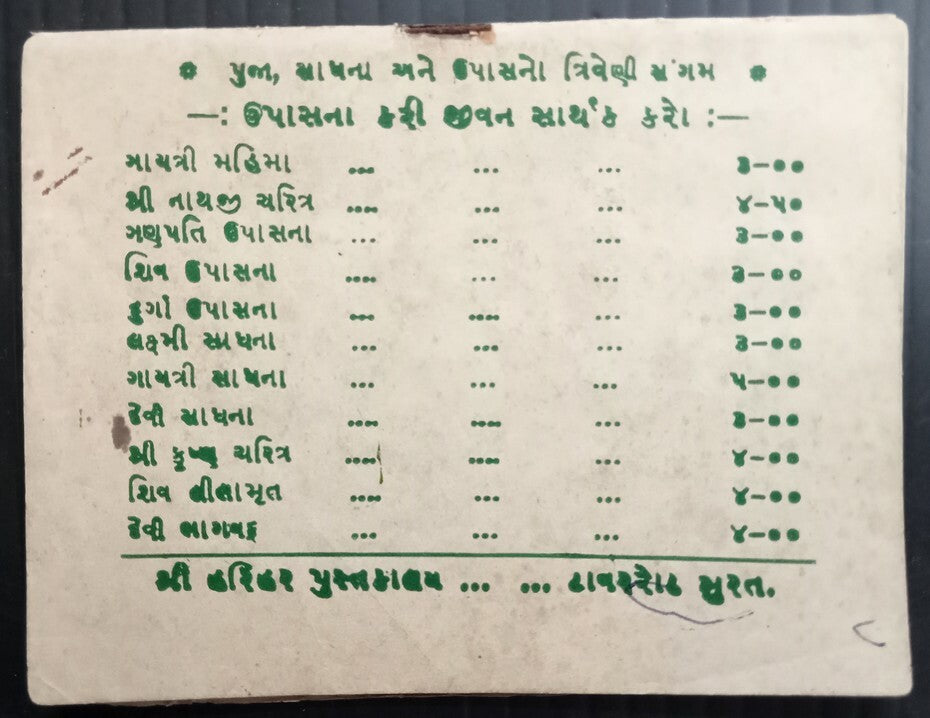 * પુજા, સાધના અને ઉપાસનાે ત્રિવેણી સંગમ *
—: ઉપાસના કરી જીવન સાર્થક કરો :—
ગાયત્રી મહિમા ... ... ... ૩-૦૦
શ્રી નાથજી ચરિત્ર .... ... ... ૪-૫૦
ગણપતિ ઉપાસના ... ... ... ૩-૦૦
શિવ ઉપાસના .... ... ... ૩-૦૦
દુર્ગા ઉપાસના ... .... ... ૩-૦૦
લક્ષ્મી સાધના ... ... ... ૩-૦૦
ગાયત્રી સાધના ... ... ... ૫-૦૦
દેવી સાધના .... .... ... ૩-૦૦
શ્રી કૃષ્ણ ચરિત્ર .... .... ... ૪-૦૦
શિવ લીલામૃત .... ... ... ૪-૦૦
દેવી ભાગવદ્ ... ... ... ૪-૦૦
શ્રી હરિહર પુસ્તકાલય ... ... ટાવરરોડ સુરત.